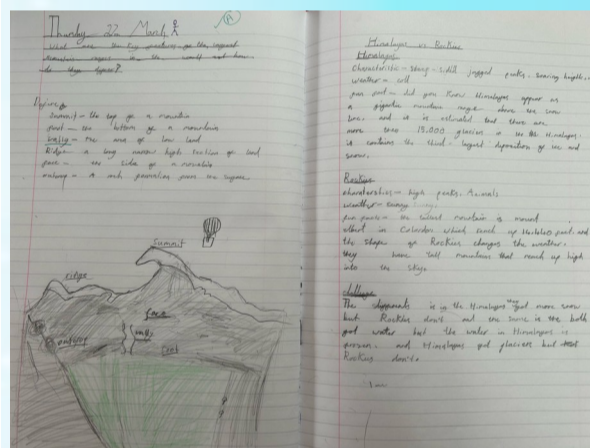 Thursday 22 March
What are the key features of the
mountain ranges in the world and how
do they
Summit - the top of a mountain
foot - the bottom of a mountain
valley - the area of low land
Ridge a long narrow high section of land
face - the side of a mountain
outcrop - A rock
Summit
ridge
face
outcrop
foot
Himalayas vs Rockies
Himalayas
Characteristic - steep - sided jagged peaks, soaring heights.
weather - cold
fun fact - did you know Himalayas appear as
a gigantic mountain range above the snow
line. and it is estimated that there are
more than 15,000 glaciers in the Himalayas.
it contains the third - largest deposition of ice and
snow.
Rockies
charateristics - high peaks, Animals
weather -
fun facts - the tallest mountain is mount
elbert in which
the shape of Rockies changes the weather.
they have tall mountains that reach up high
into the sky.
The is in the Himalayas they got more snow
but Rockies don't and the same is the both
got water but the water in Himalayas is
frozen. and Himalayas got glaciers but
Rockies don't.